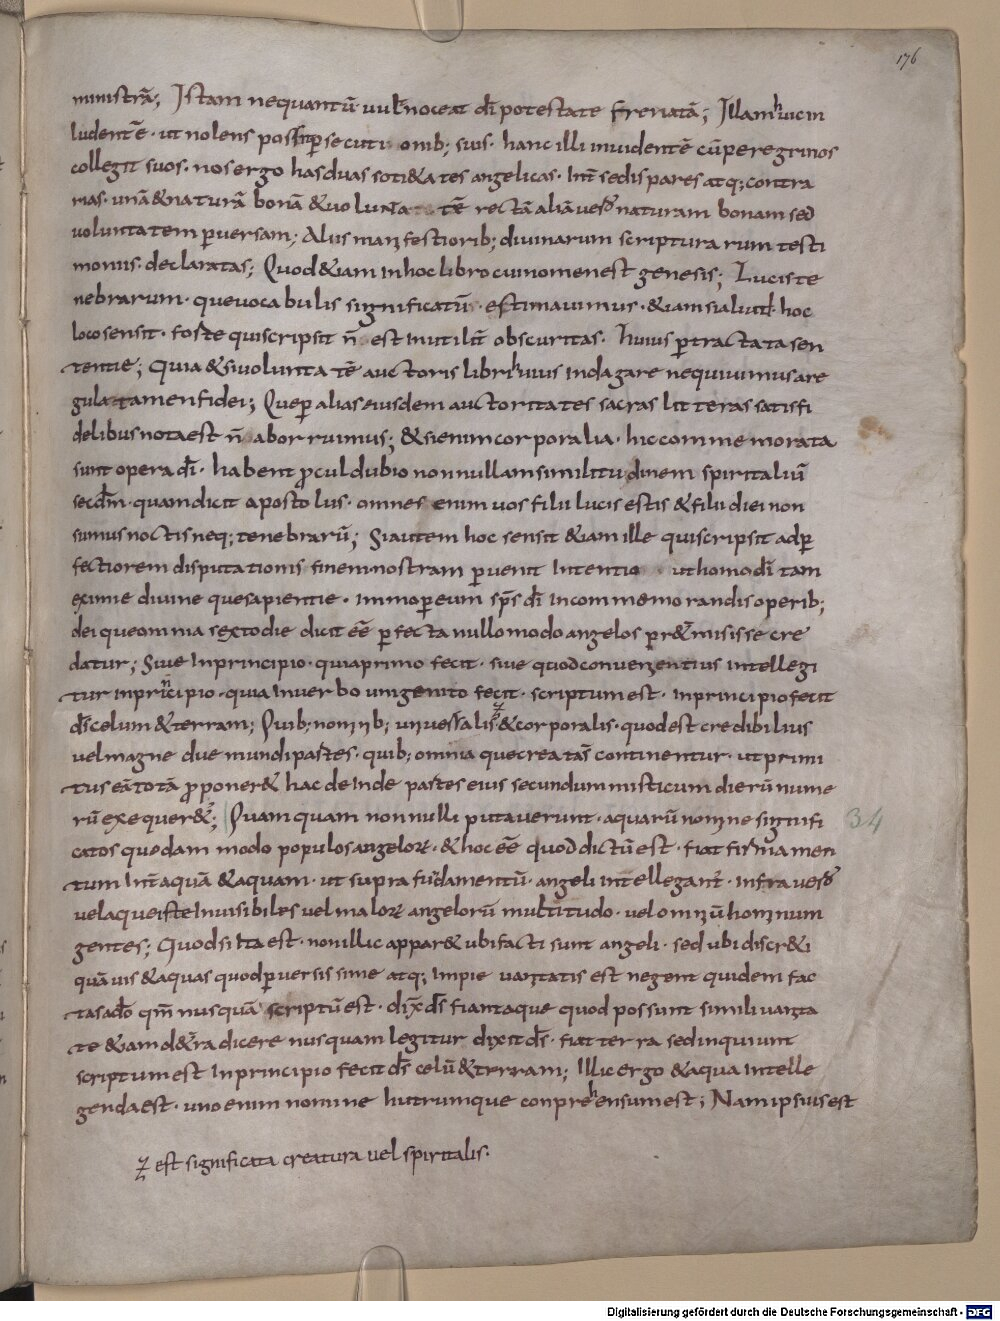 176
ministrā; Istam nequantū uult noceat dī potestate frenatā; Illam huic in
ludentē · ut nolens prosit persecutionib; suis · hanc illi inuidentē cū peregrinos
collegit suos · nos ergo has duas soti&ates angelicas · Int̄ se dispares atq; contra
rias · unā & naturā bonā & uoluntate rectā aliā uero naturam bonam sed
uoluntatem peruersam; Aliis manifestiorib; diuinarum scripturarum testi
moniis declaratas; Quod &iam in hoc libro cui nomen est genesis; Lucis te
nebrarum · que uocabulis significatū · estimauimus · &iamsi aliud hoc
loco sensit · forte qui scripsit n̄ est inutilit̄ obscuritas · huius pertractata sen
tentie; Quia & si uoluntatē auctoris libri huius indagare nequiuimus a re
gula tamen fidei; Que per alias eiusdem auctoritates sacras litteras satis fi
delibus nota est n̄ aborruimus; & si enim corporalia · hic commemorata
sunt opera dī · habent procul dubio nonnullam similitudinem spiritaliū
secdm̄ · quam dicit apostolus · omnes enim uos filii lucis estis & filii diei non
sumus noctis neq; tenebrarū; Si autem hoc sensit &iam ille qui scripsit ad per
fectiorem disputationis finem nostram peruenit Intentio · ut homo dī tam
eximie diuine que sapientie · immo per eum sp̄s dī In commemorandis operib;
dei que omnia sexto die dicit eē perfecta nullo modo angelos pr&ermisisse cre
datur; Siue Inprincipio · quia primo fecit · siue quod conuenientius intellegi
tur inprincipio · quia Inuerbo unigenito fecit · scriptum est · inprincipio fecit
dī celum & terram; Quib; nominib; uniuersalis & corporalis · quod est credibilius
uel magne due mundi partes · quib; omnia que creata s̄ continentur · ut primi
tus eā totā proponer& hac deinde partes eius secundum misticum dierū nume
rū exequer&ur; Quam quam nonnulli putauerunt · aquarū nomine signifi
catos quodam modo populos angelorum · & hoc eē quod dictū est · fiat firmamen
tum Int̄ aquā & aquam · ut supra firmamentū · angeli intellegant̄ · infra uero
uel aque iste Inuisibiles uel malorum angelorū multitudo · uel omniū hominum
gentes; Quod si ita est · non illic appar& ubi facti sunt angeli · sed ubi discr&i
quā uis & aquas quod peruersissime atq; impie uanitatis est negent quidem fac
tas a dō qm̄ nusquā scriptū est · dix̄ dī fiant aque quod possunt simili uanita
te &iam de t&ra dicere nusquam legitur dixit dī · fiat terra sed inquiunt
scriptum est Inprincipio fecit dī celū & trrram; Illic ergo & aqua intelle
genda est · uno enim nomine hutrumque conprehensum est; Nam ipsius est
34
est significata creatura uel spiritalis ·
Digitalisierung gefördert durch die Deutsche Forschungsgemeinschaft - DFG